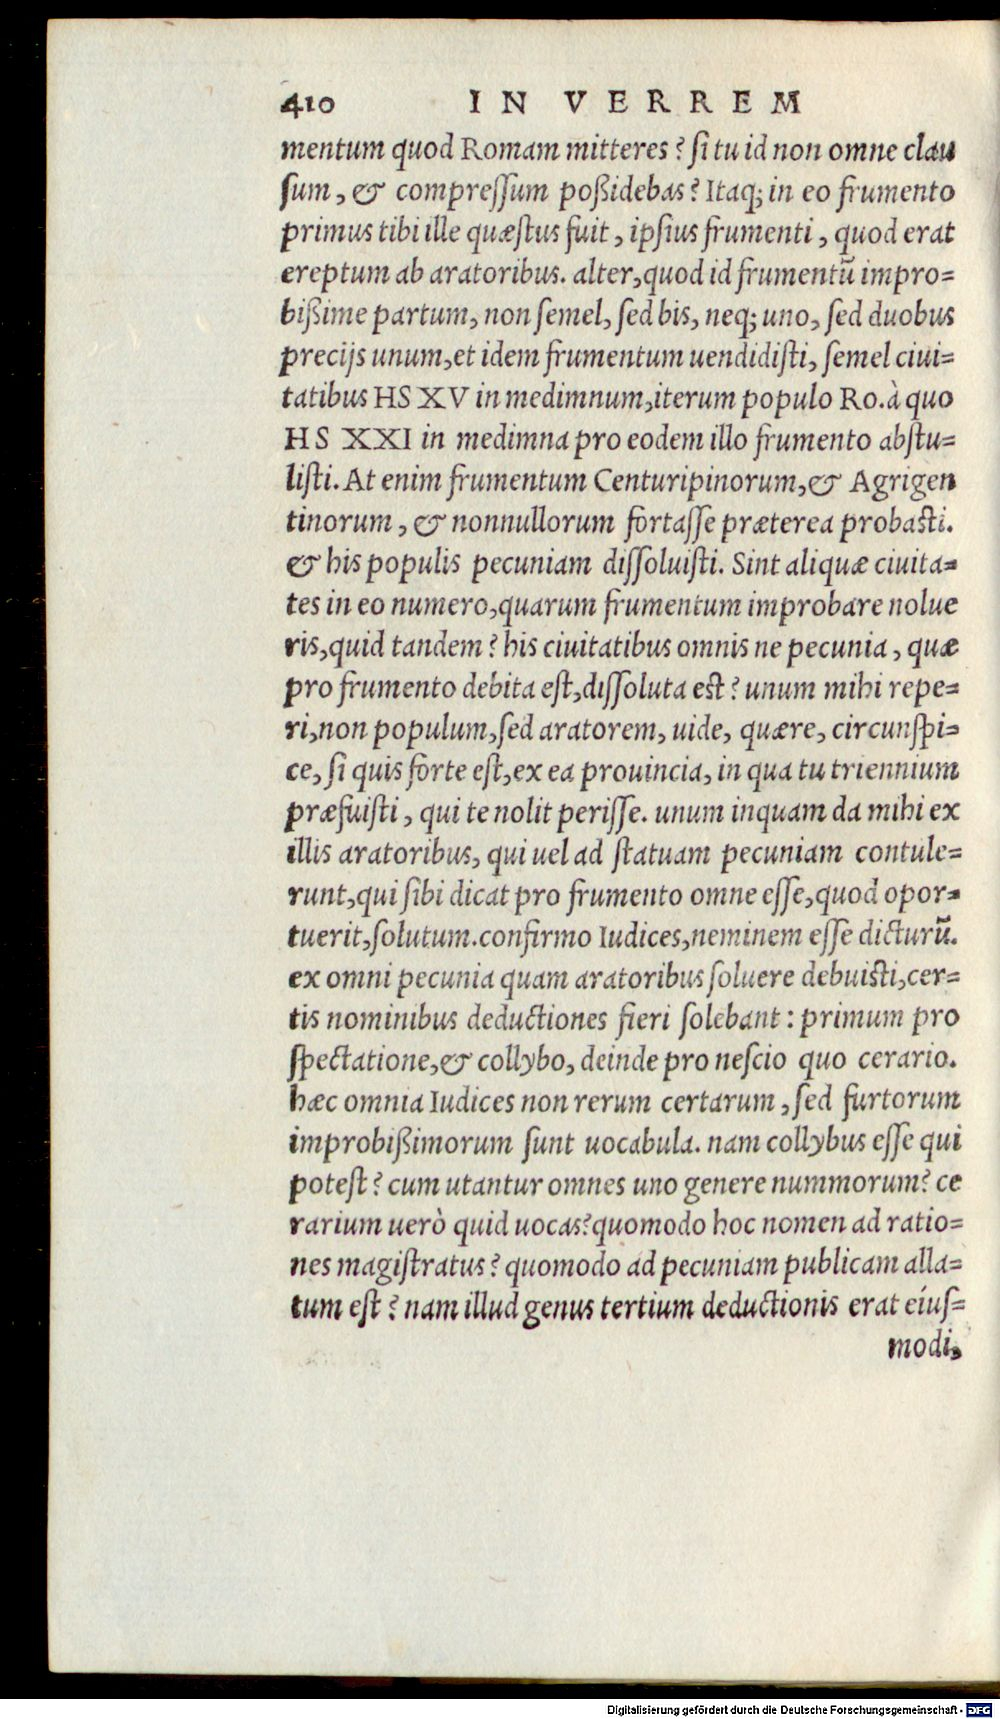 410 IN VERREM
mentum quod Romam mitteres? si tu id non omne clau
sum, & compressum poßidebas? Itaq; in eo frumento
primus tibi ille quæstus fuit, ipsius frumenti, quod erat
ereptum ab aratoribus. alter, quod id frumentū impro=
bißime partum, non semel, sed bis, neq; uno, sed duobus
precijs unum, et idem frumentum uendidisti, semel ciui=
tatibus HS XV in medimnum, iterum populo Ro. à quo
HS XXI in medimna pro eodem illo frumento abstu=
listi. At enim frumentum Centuripinorum, & Agrigen
tinorum, & nonnullorum fortasse præterea probasti.
& his populis pecuniam dissoluisti. Sint aliquæ ciuita=
tes in eo numero, quarum frumentum improbare nolue
ris, quid tandem? his ciuitatibus omnis ne pecunia, quæ
pro frumento debita est, dissoluta est? unum mihi repe=
ri, non populum, sed aratorem, uide, quære, circunspi=
ce, si quis forte est, ex ea prouincia, in qua tu triennium
præfuisti, qui te nolit perisse. unum inquam da mihi ex
illis aratoribus, qui uel ad statuam pecuniam contule=
runt, qui sibi dicat pro frumento omne esse, quod opor=
tuerit, solutum. confirmo Iudices, neminem esse dicturū.
ex omni pecunia quam aratoribus soluere debuisti, cer=
tis nominibus deductiones fieri solebant: primum pro
spectatione, & collybo, deinde pro nescio quo cerario.
hæc omnia Iudices non rerum certarum, sed furtorum
improbißimorum sunt uocabula. nam collybus esse qui
potest? cum utantur omnes uno genere nummorum? ce
rarium uerò quid uocas? quomodo hoc nomen ad ratio=
nes magistratus? quomodo ad pecuniam publicam alla=
tum est? nam illud genus tertium deductionis erat eíus=
modi,
Digitalisierung gefördert durch die Deutsche Forschungsgemeinschaft - DFG